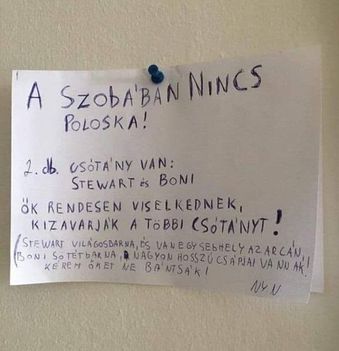 A SZOBÁBAN NINCS
POLOSKA!
2. db. CSÓTÁNY VAN:
STEWART ÉS BONI
ŐK RENDESEN VISELKEDNEK,
KIZAVARJÁK A TÖBBI CSÓTÁNYT!
(STEWART VILÁGOSBARNA, ÉS VAN EGY SEBHELY AZ ARCÁN,
BONI SÖTÉTBARNA, NAGYON HOSSZÚ CSÁPJAI VANNAK!
KÉREM ŐKET NE BÁNTSÁK!